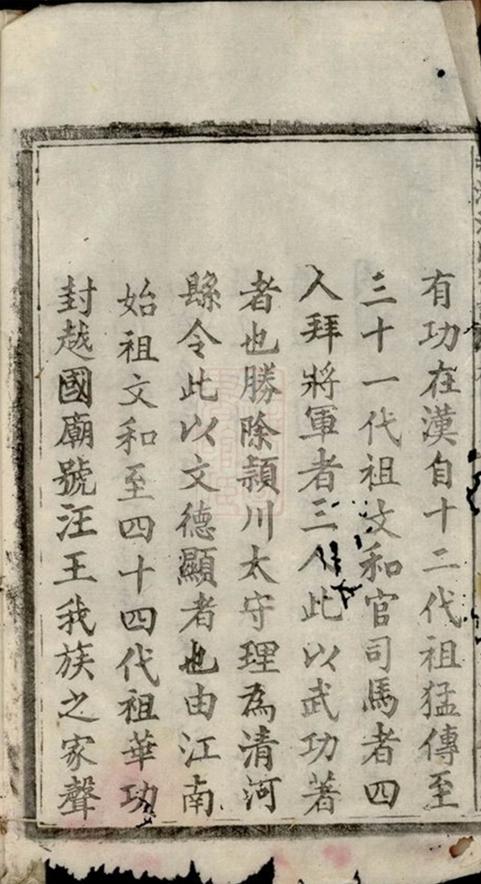 有功在漢自十二代祖猛傳至
三十一代祖文和官司馬者四
人拜將軍者三人此以武功著
者也勝除頴川太守理為清河
縣令此以文德顯者也由江南
始祖文和至四十四代祖華功
封越國廟號汪王我族之家聲